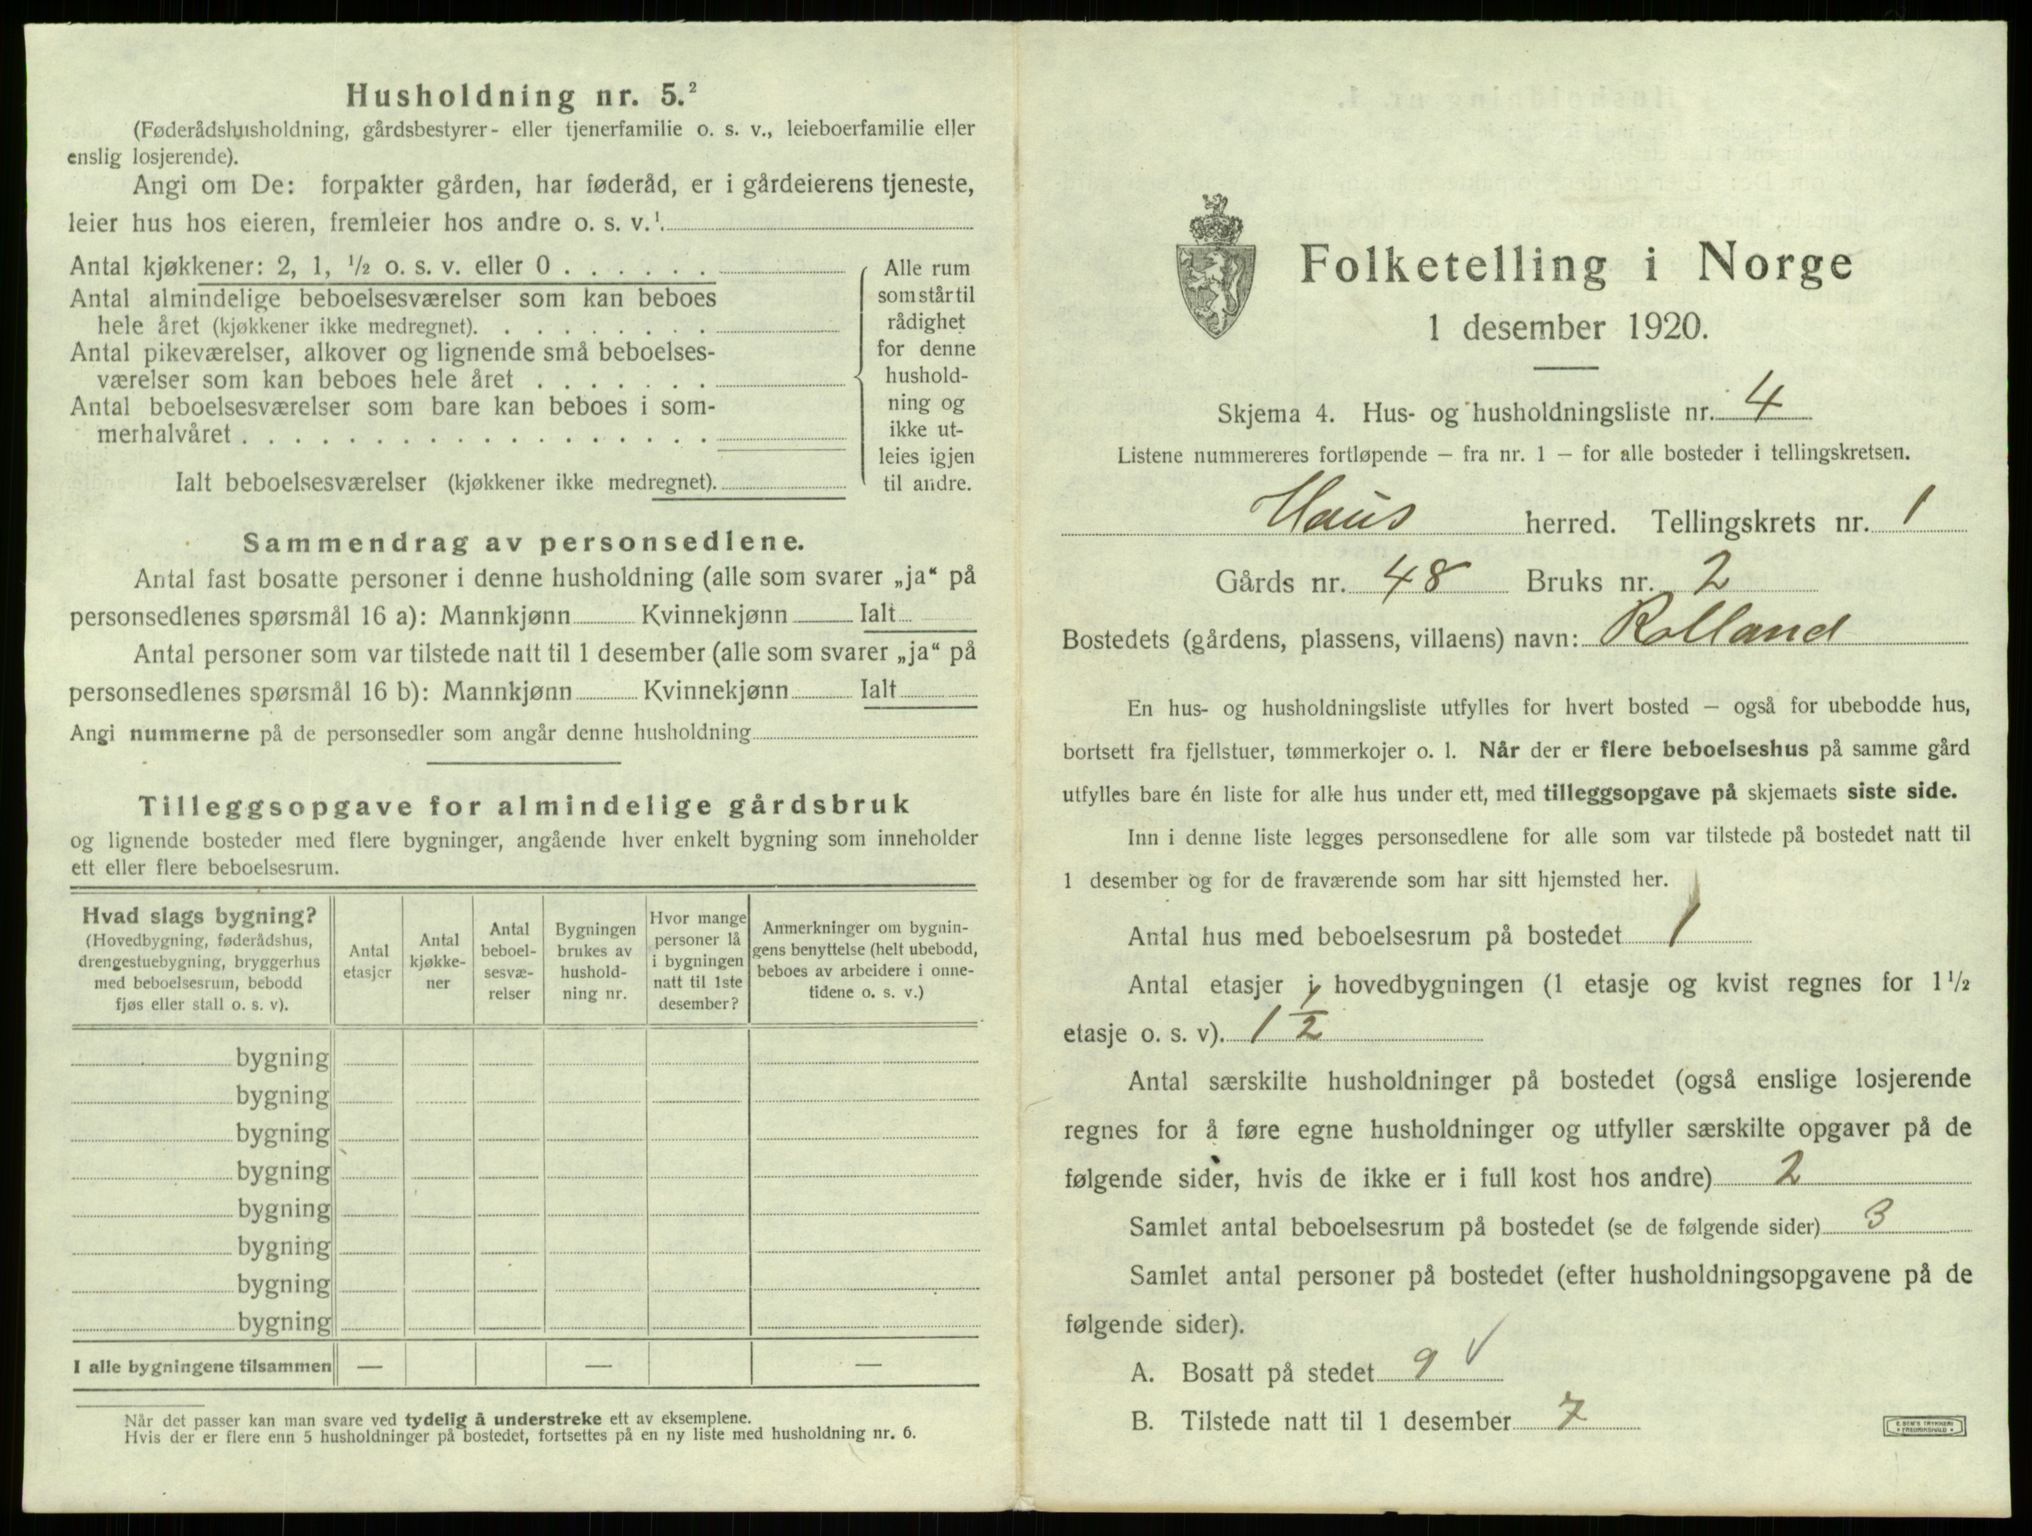 Husholdning nr. 5.²
(Føderådshusholdning, gårdsbestyrer- eller tjenerfamilie o. s. v., leieboerfamilie eller
enslig losjerende).
Angi om De: forpakter gården, har føderåd, er i gårdeierens tjeneste,
leier hus hos eieren, fremleier hos andre o. s. v.¹
Antal kjøkkener: 2, 1, ½ o. s. v. eller 0 . . . . . .
Antal almindelige beboelsesværelser som kan beboes
hele året (kjøkkener ikke medregnet). . . . . . . . .
Antal pikeværelser, alkover og lignende små beboelses-
værelser som kan beboes hele året . . . . . . .
Antal beboelsesværelser som bare kan beboes i som-
merhalvåret . . . . . . . . . . . . . . . . . .
Ialt beboelsesværelser (kjøkkener ikke medregnet).
Alle rum
som står til
rådighet
for denne
hushold-
ning og
ikke ut-
leies igjen
til andre.
Sammendrag av personsedlene.
Antal fast bosatte personer i denne husholdning (alle som svarer „ja“ på
personsedlenes spørsmål 16 a): Mannkjønn Kvinnekjønn Ialt
Antal personer som var tilstede natt til 1 desember (alle som svarer „ja“ på
personsedlenes spørsmål 16 b): Mannkjønn Kvinnekjønn Ialt
Angi nummerne på de personsedler som angår denne husholdning
Tilleggsopgave for almindelige gårdsbruk
og lignende bosteder med flere bygninger, angående hver enkelt bygning som inneholder
ett eller flere beboelsesrum.
Hvad slags bygning?
(Hovedbygning, føderådshus,
drengestuebygning, bryggerhus
med beboelsesrum, bebodd
fjøs eller stall o. s. v).
Antal
etasjer
Antal
kjøkke-
ner
Antal
beboel-
sesvæ-
relser
Bygningen
brukes av
hushold-
ning nr.
Hvor mange
personer lå
i bygningen
natt til 1ste
desember?
Anmerkninger om bygnin-
gens benyttelse (helt ubebodd,
beboes av arbeidere i onne-
tidene o. s. v.)
bygning
bygning
bygning
bygning
bygning
bygning
bygning
bygning
I alle bygningene tilsammen — — —
Når det passer kan man svare ved tydelig å understreke ett av eksemplene.
Hvis der er flere enn 5 husholdninger på bostedet, fortsettes på en ny liste med husholdning nr. 6.
Folketelling i Norge
1 desember 1920.
Skjema 4. Hus- og husholdningsliste nr. 4
Listene nummereres fortløpende – fra nr. 1 – for alle bosteder i tellingskretsen.
Haus herred. Tellingskrets nr. 1
Gårds nr. 48 Bruks nr. 2
Bostedets (gårdens, plassens, villaens) navn: Rolland
En hus- og husholdningsliste utfylles for hvert bosted – også for ubebodde hus,
bortsett fra fjellstuer, tømmerkojer o. l. Når der er flere beboelseshus på samme gård
utfylles bare én liste for alle hus under ett, med tilleggsopgave på skjemaets siste side.
Inn i denne liste legges personsedlene for alle som var tilstede på bostedet natt til
1 desember og for de fraværende som har sitt hjemsted her.
Antal hus med beboelsesrum på bostedet 1
Antal etasjer i hovedbygningen (1 etasje og kvist regnes for 1½
etasje o. s. v). 1 ½
Antal særskilte husholdninger på bostedet (også enslige losjerende
regnes for å føre egne husholdninger og utfyller særskilte opgaver på de
følgende sider, hvis de ikke er i full kost hos andre) 2
Samlet antal beboelsesrum på bostedet (se de følgende sider) 3
Samlet antal personer på bostedet (efter husholdningsopgavene på de
følgende sider).
A. Bosatt på stedet 9 √
B. Tilstede natt til 1 desember 7
E. SEM'S TRYKKERI
FREDRIKSHALD